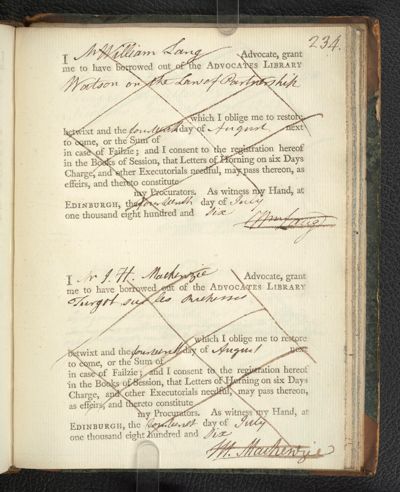 234.
I Mr William Lang Advocate, grant
me to have borrowed out of the ADVOCATES LIBRARY
Watson on the Law of Partnership
which I oblige me to restore
betwixt and the fourteenth day of August next
to come, or the Sum of
in case of Failzie; and I consent to the registration hereof
in the Books of Session, that Letters of Horning on six Days
Charge, and other Executorials needful, may pass thereon, as
effeirs, and thereto constitute
my Procurators. As witness my Hand, at
EDINBURGH, the fourteenth day of July
one thousand eight hundred and Six
Wm Lang
I Mr J. H. Mackenzie Advocate, grant
me to have borrowed out of the ADVOCATES LIBRARY
Turgot sur les Richesses
which I oblige me to restore
betwixt and the fourteenth day of August next
to come, or the Sum of
in case of Failzie; and I consent to the registration hereof
in the Books of Session, that Letters of Horning on six Days
Charge, and other Executorials needful, may pass thereon,
as effeirs, and thereto constitute
my Procurators. As witness my Hand, at
EDINBURGH, the day of July
one thousand eight hundred and Six
J H. Mackenzie